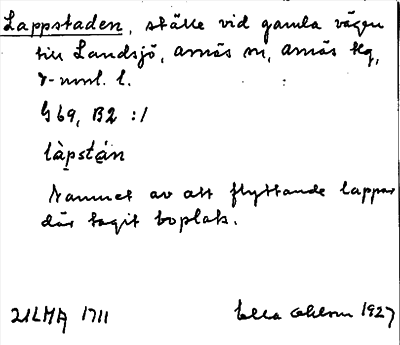 Lappstaden, ställe vid gamla vägen
till Landsjö, Arnäs sn, Arnäs tlg,
V-nrrl. l.
G 69, B2 :1
làpstán
Namnet av att flyttande lappar
där tagit boplats.
ULMA 1711 Ella Ohlson 1927